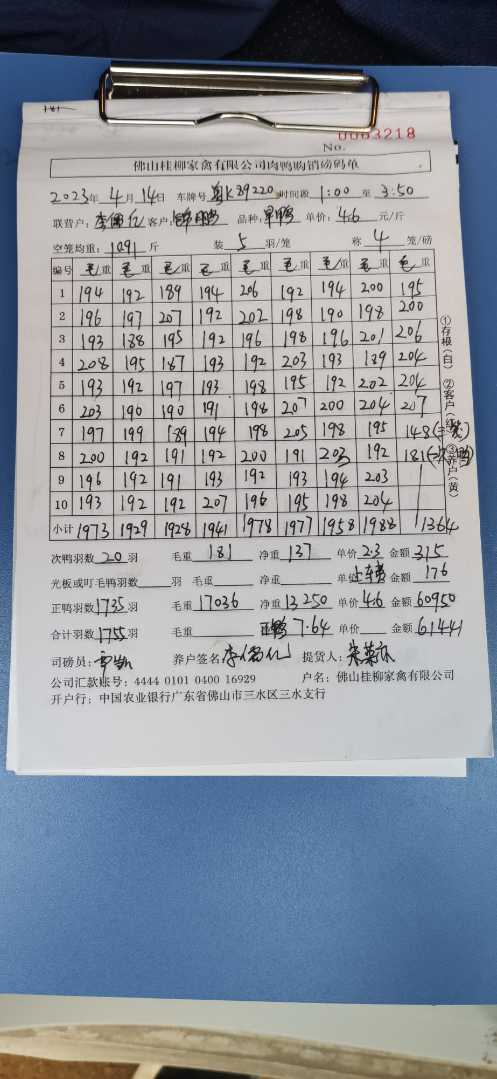 0063218
No.
佛山桂柳家禽有限公司肉鸭购销磅码单
2023年 4月 14日 车牌号 粤K89220 时间段 1:00 至 3:50
联营户: 李儒亿 客户: 锦鹏 品种: 旱鸭 单价: 4.6 元/斤
空笼均重: 10.91 斤 装 5 羽/笼 称 4 笼/磅
编号 毛重 毛重 毛重 毛重 毛重 毛重 毛重 毛重 毛重
1 194 192 189 194 206 192 194 200 195
2 196 197 207 192 202 198 190 198 200
3 193 188 195 192 196 198 196 201 206
4 208 195 187 193 192 203 193 189 204
5 193 192 197 193 198 195 192 202 204
6 203 190 190 191 198 207 200 204 207
7 197 199 189 194 198 205 198 195 148(三笼)
8 200 192 191 192 200 191 203 192 181(次鸭)
9 196 192 191 193 192 193 194 203
10 193 192 192 207 196 195 198 204
小计 1973 1929 1928 1941 1978 1977 1958 1988 1364
次鸭羽数 20 羽 毛重 181 净重 137 单价 2.3 金额 315
光板或叮毛鸭羽数 羽 毛重 净重 单价 上车费 金额 176
正鸭羽数 1735 羽 毛重 17036 净重 13250 单价 4.6 金额 60950
合计羽数 1755 羽 毛重 正鸭 7.64 单价 金额 61441
司磅员: 养户签名: 李儒亿 提货人:
公司汇款账号: 4444 0101 0400 16929 户名: 佛山桂柳家禽有限公司
开户行: 中国农业银行广东省佛山市三水区三水支行
①存根(白) ②客户(红) ③养户(黄)